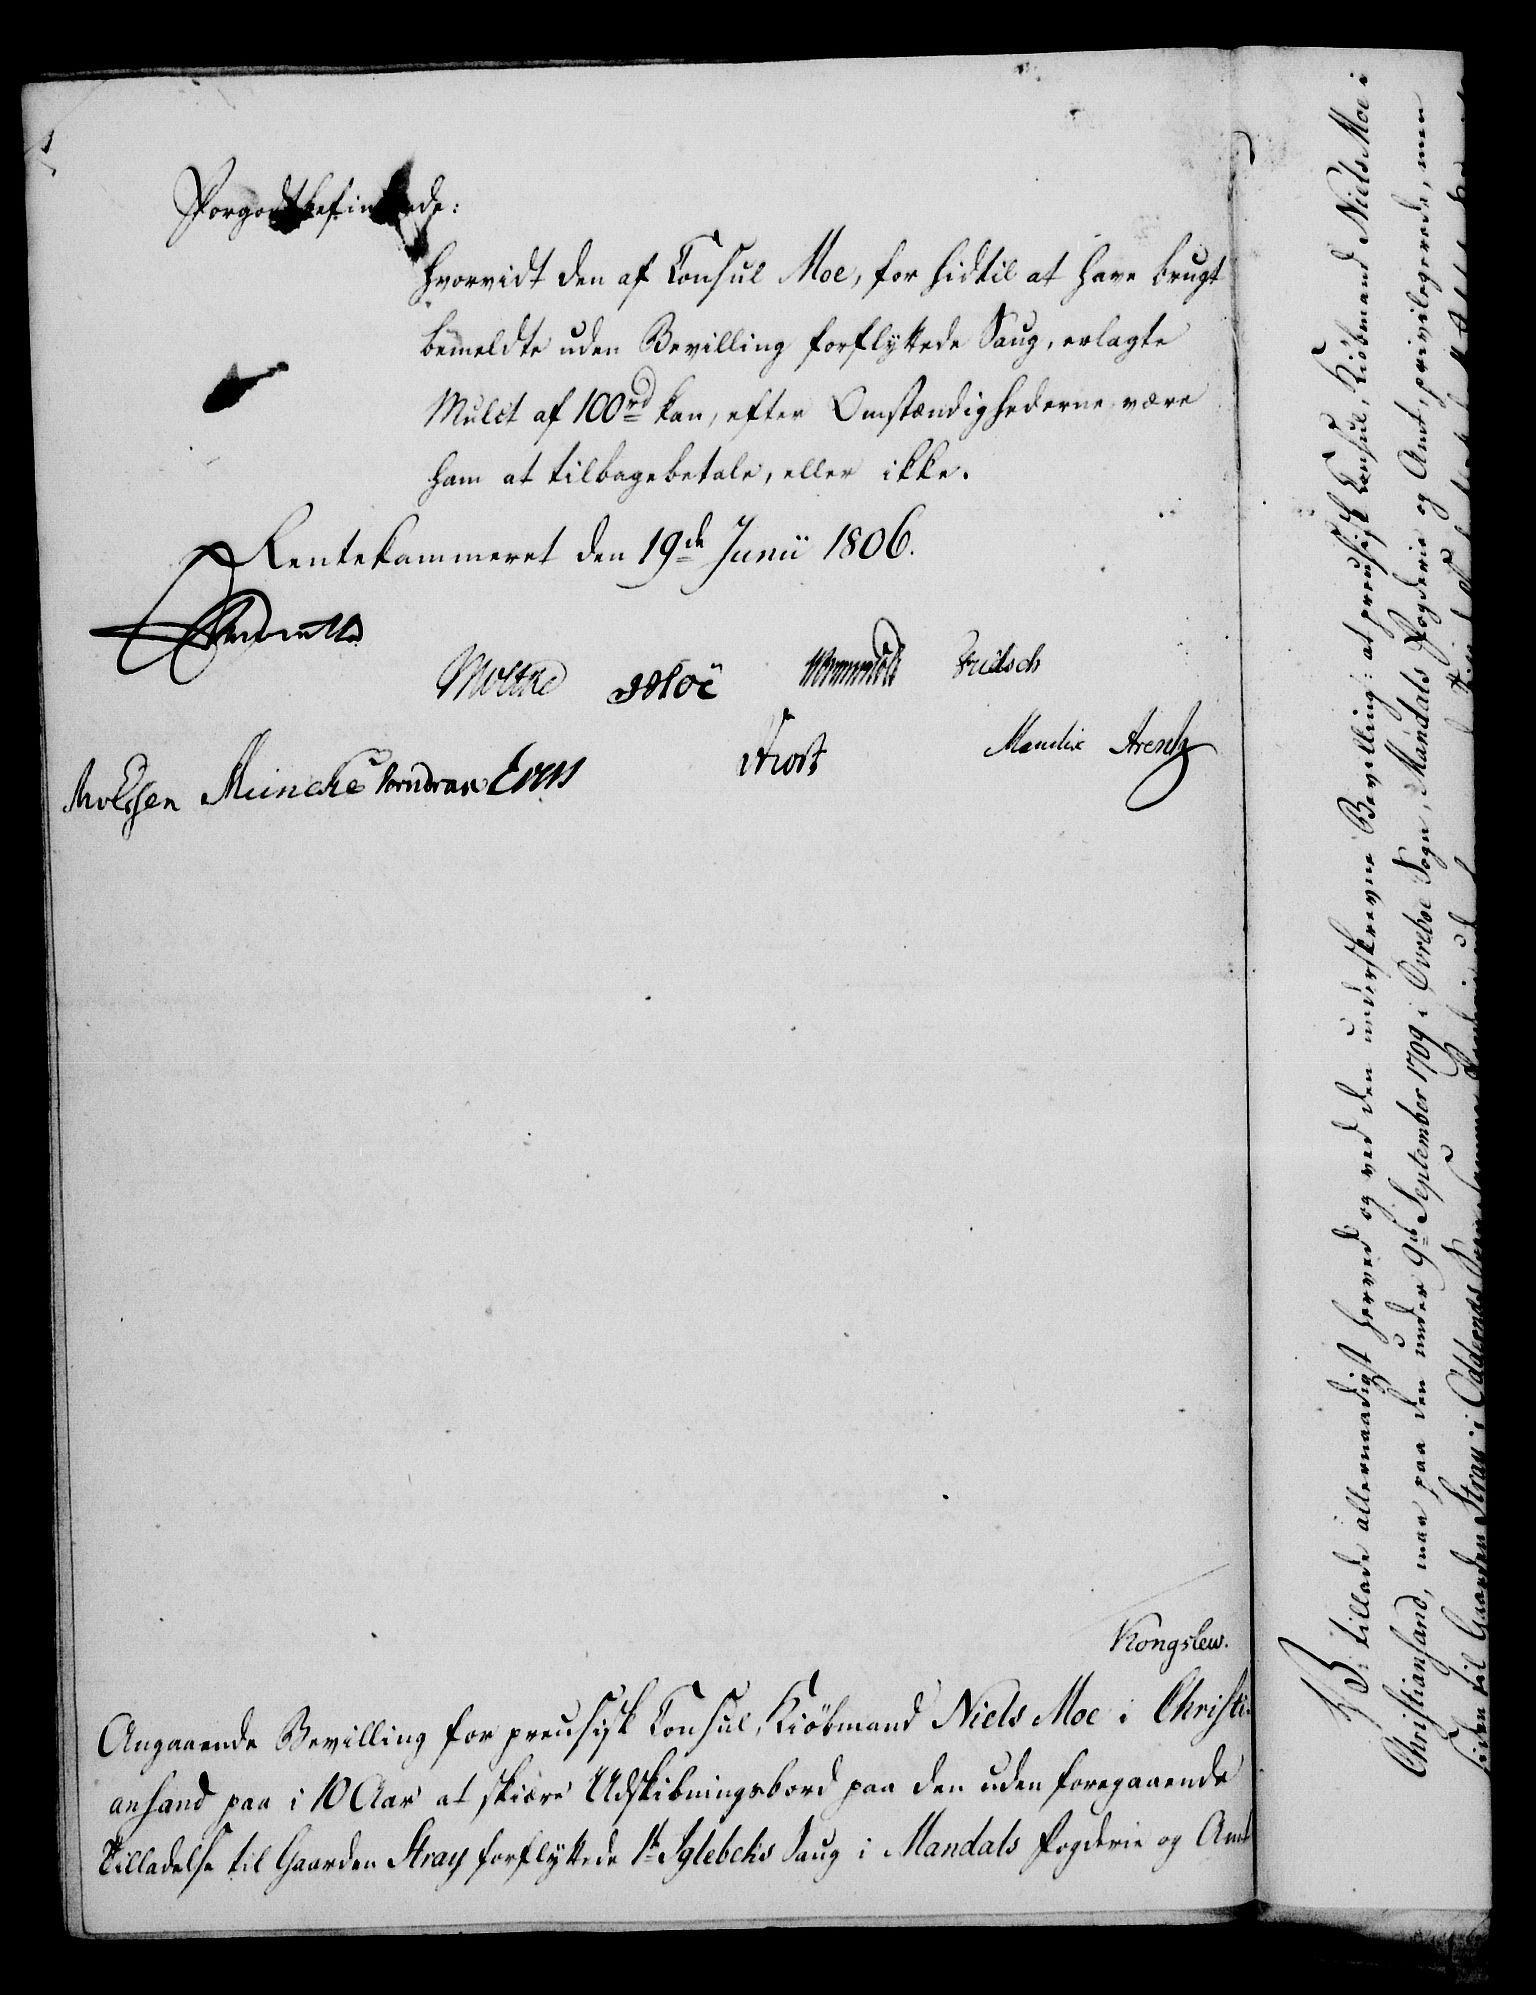 Forgodtbefindende:
hvorvidt den af Consul Moe, for hidtil at have brugt
bemeldte uden Bevilling forflyttede Saug, erlagte
Mulct af 100 rd kan, efter Omstændighederne, være
ham at tilbagebetale, eller ikke.
Rentekammeret den 19de Junii 1806.
Moltke Hoë Wormskiold Fritsch
Meincke Vorndran Evers Knoph Manthey Arentz
Kongslew.
Angaaende Bevilling for preusisk Consul, Kiöbmand Niels Moe i Christi-
ansand paa i 10 Aar at skiære Udskibningsbord paa den uden foregaaende
Tilladelse til Gaarden Stray forflyttede 1te Iglebeks Saug i Mandals Fogderie og Amt
Vi tillade allernaadigst herved og ved den underskrevne Bevilling: at preusisk Consul, Kiöbmand Niels Moe i
Christiansand, maa paa den under 9de September 1709 i Øvreboe Sogn, Mandals Fogderie og Amt, privilegerede, men
siden til Gaarden Stray i Oddernes